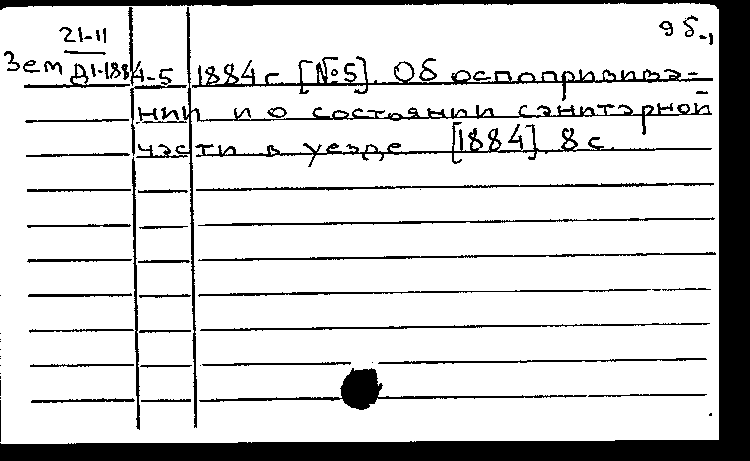 21-11
9б-1
Зем Д1-1884-5 1884 г [№5]. Об оспопривива-
нии и о состоянии санитарной
части в уезде [1884] 8 с.